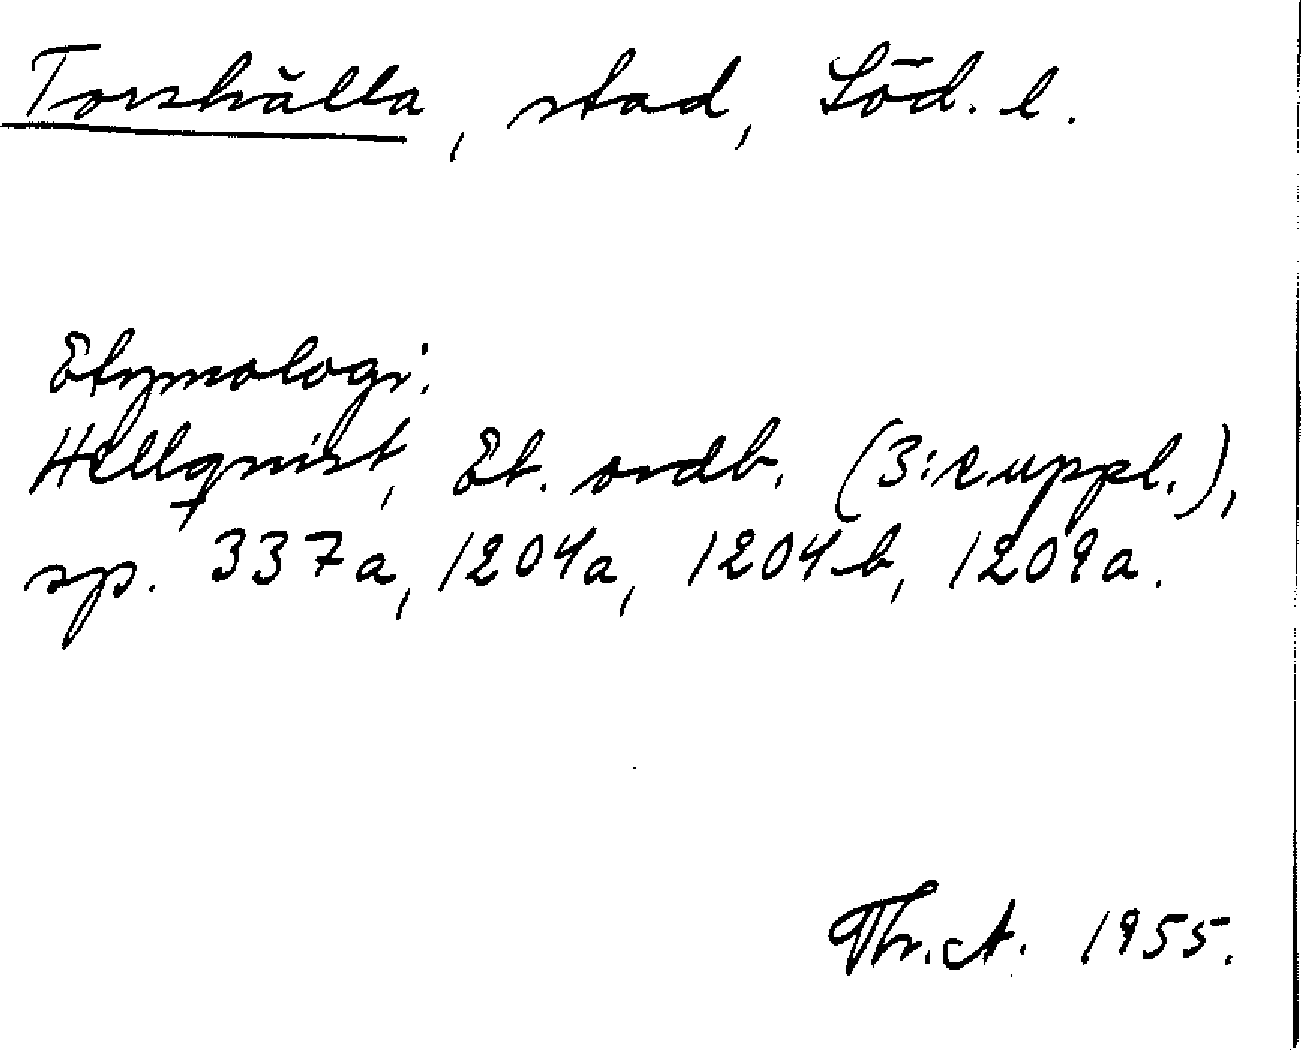 Torshälla, stad, Söd. l.
Etymologi:
Hellquist, Et. ordb. (3:e uppl.),
sp. 337a, 1204a, 1204b, 1209a.
Thr. A. 1955.